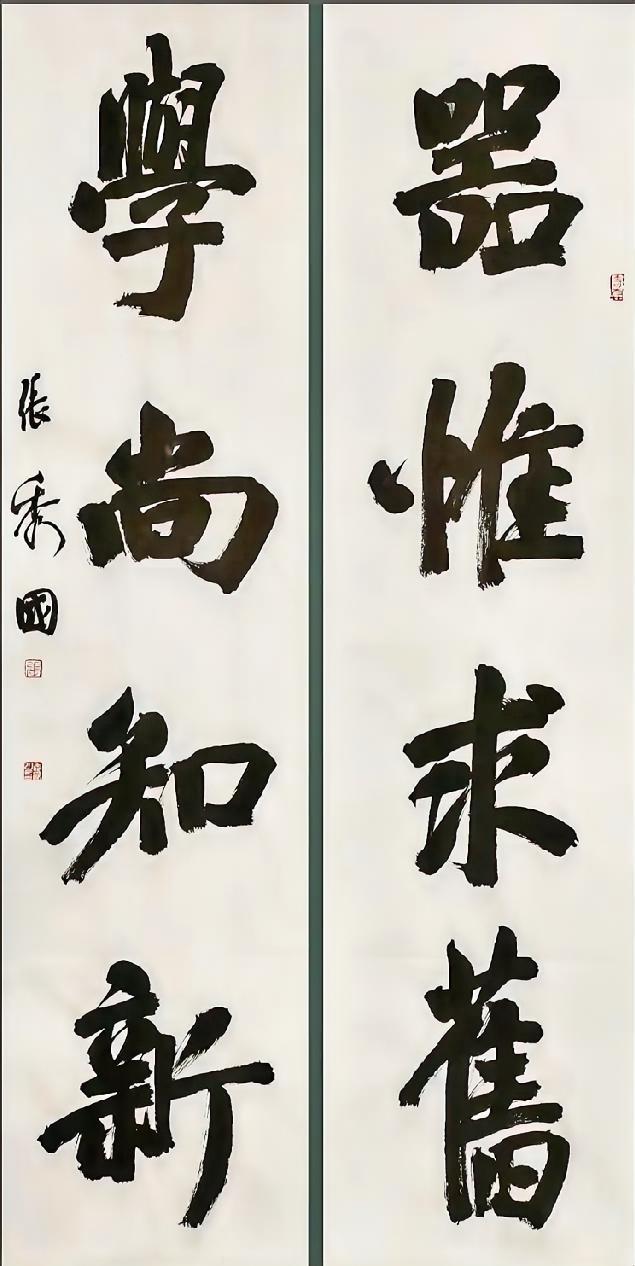 器惟求舊
學尚知新
張秀國